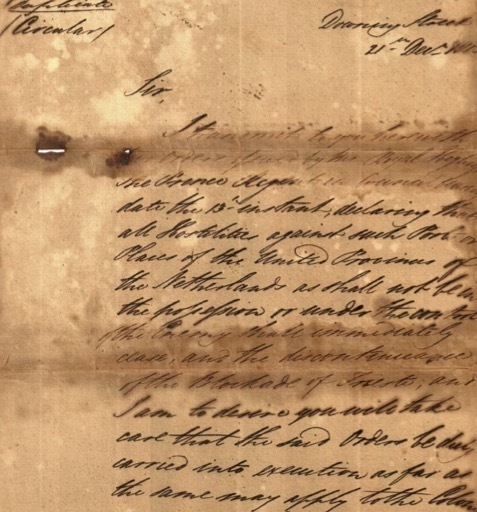 Duplicate
(Circular)
Downing Street
21st Decr.
Sir,
I transmit to you herewith
Orders issued by His Royal High
the Prince Regent in Council
date the 13th instant, declaring that
all Hostilities against such Ports or
Places of the United Provinces of
the Netherlands as shall not be in
the possession or under the control
of the Enemy shall immediately
cease, and the discontinuance
of the Blockade of Trieste, and
I am to desire you will take
care that the said Orders be duly
carried into execution as far as
the same may apply to the Colon